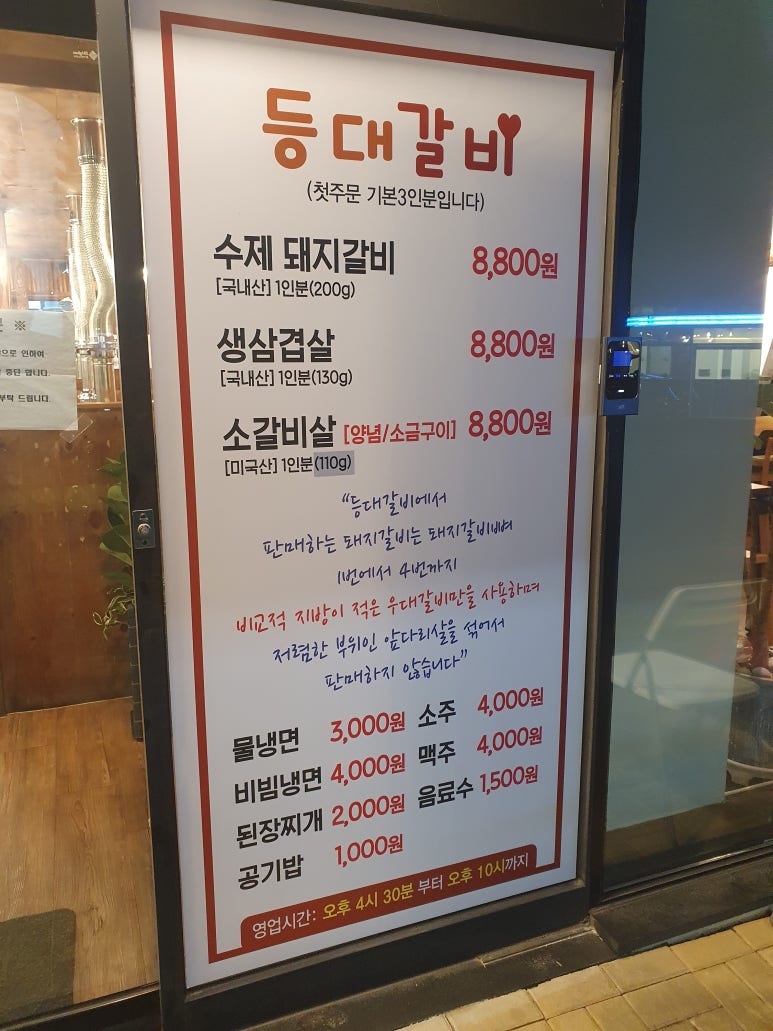 등대갈비
(첫주문 기본3인분입니다)
수제 돼지갈비 8,800원
[국내산] 1인분(200g)
생삼겹살 8,800원
[국내산] 1인분(130g)
소갈비살 [양념/소금구이] 8,800원
[미국산] 1인분(110g)
“등대갈비에서
판매하는 돼지갈비는 돼지갈비뼈
1번에서 4번까지
비교적 지방이 적은 우대갈비만을 사용하며
저렴한 부위인 앞다리살을 섞어서
판매하지 않습니다”
물냉면 3,000원 소주 4,000원
비빔냉면 4,000원 맥주 4,000원
된장찌개 2,000원 음료수 1,500원
공기밥 1,000원
영업시간: 오후 4시 30분 부터 오후 10시까지
※
으로 인하여
중단 합니다.
부탁 드립니다.